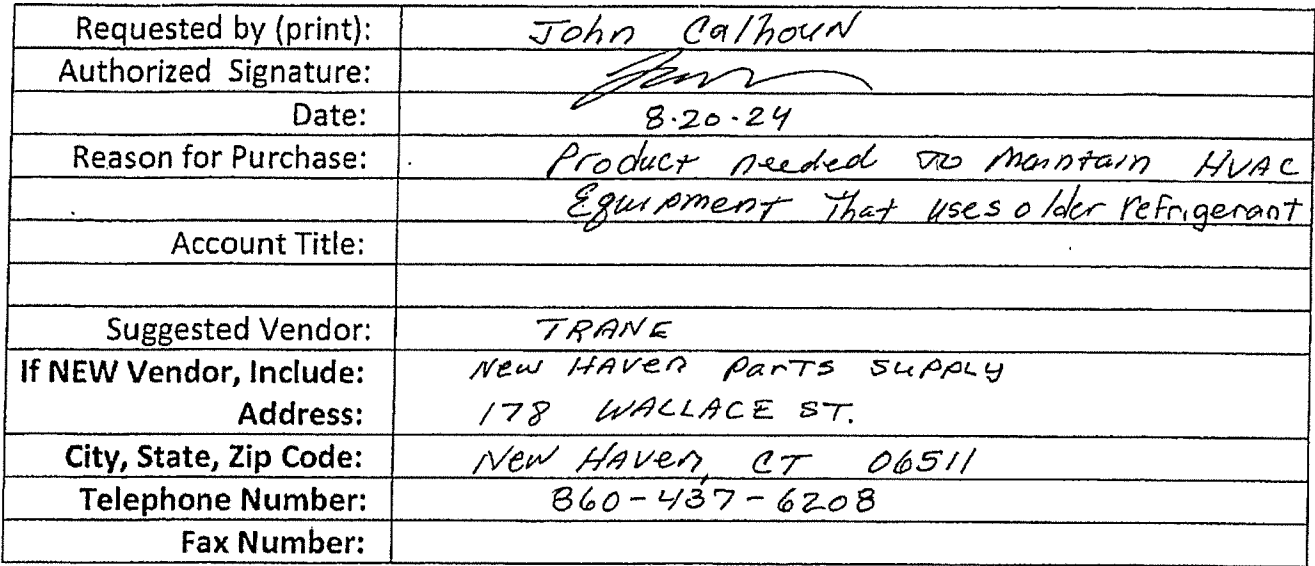 Requested by (print): John Calhoun
Authorized Signature:
Date: 8.20.24
Reason for Purchase: Product needed to Maintain HVAC
Equipment That uses older refrigerant
Account Title:
Suggested Vendor: TRANE
If NEW Vendor, Include: New HAVen PARTS SUPPLY
Address: 178 WALLACE ST.
City, State, Zip Code: New HAVen, CT 06511
Telephone Number: 860-437-6208
Fax Number: